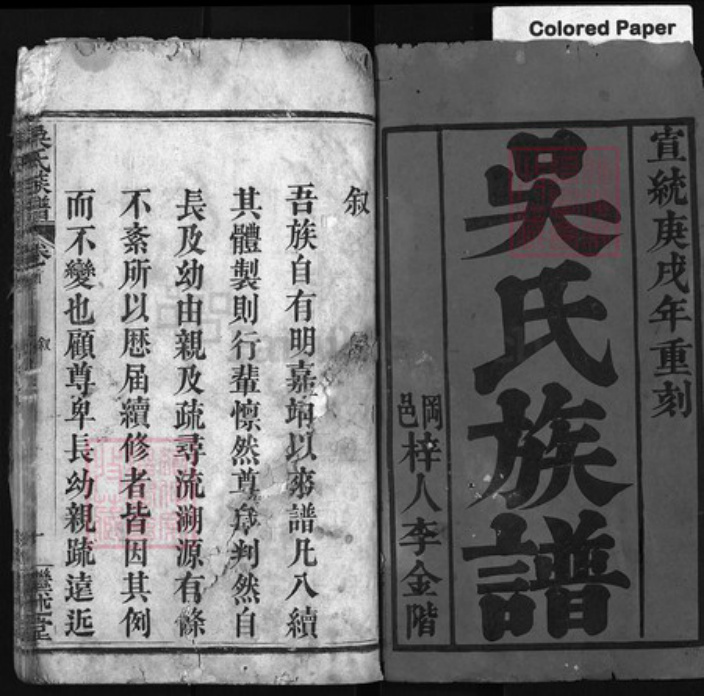 Colored Paper
宣統庚戌年重刻
吳氏族譜
岡邑梓人李金階
叙
吾族自有明嘉靖以來譜凡八續
其體製則行輩懔然尊卑判然自
長及幼由親及疏尋流溯源有條
不紊所以歷届續修者皆因其例
而不變也顧尊卑長幼親疏遠近
吳氏族譜
叙